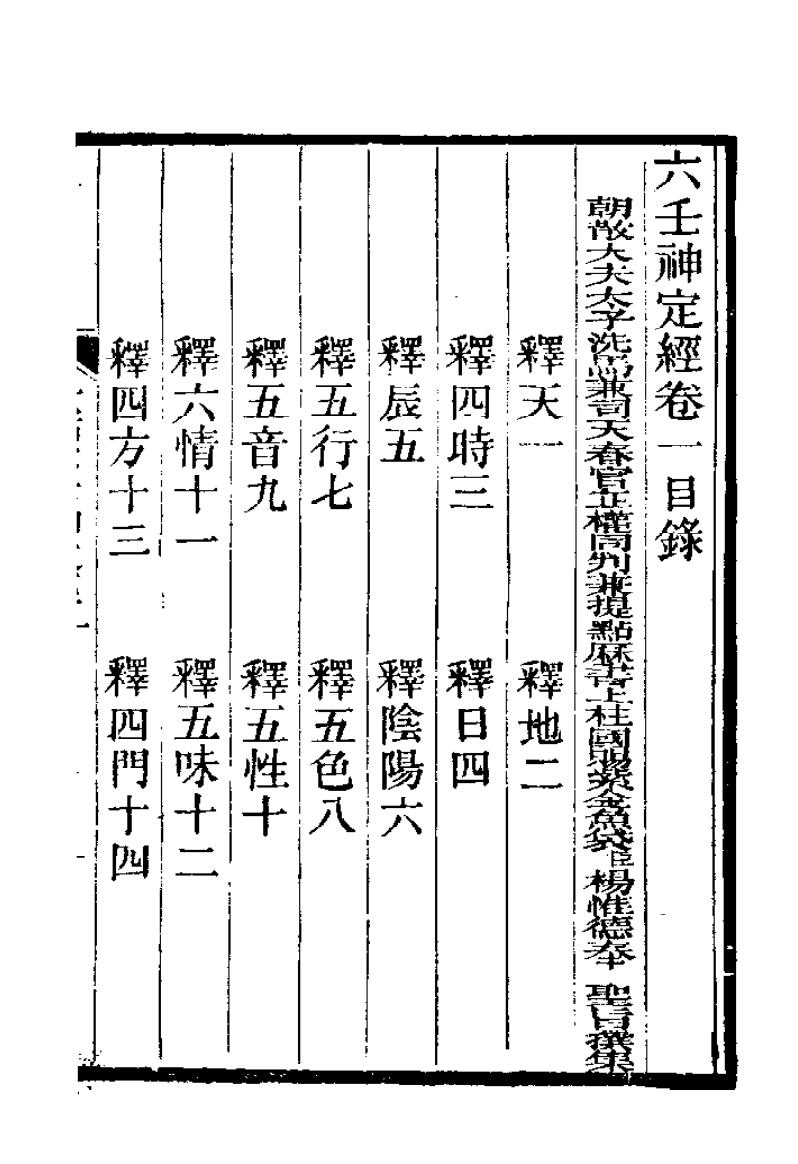 六壬神定經卷一目錄
朝散大夫太子洗馬兼司天春官正權同判兼提點曆書上柱國賜紫金魚袋臣楊惟德奉 聖旨撰集
釋天一 釋地二
釋四時三 釋日四
釋辰五 釋陰陽六
釋五行七 釋五色八
釋五音九 釋五性十
釋六情十一 釋五味十二
釋四方十三 釋四門十四